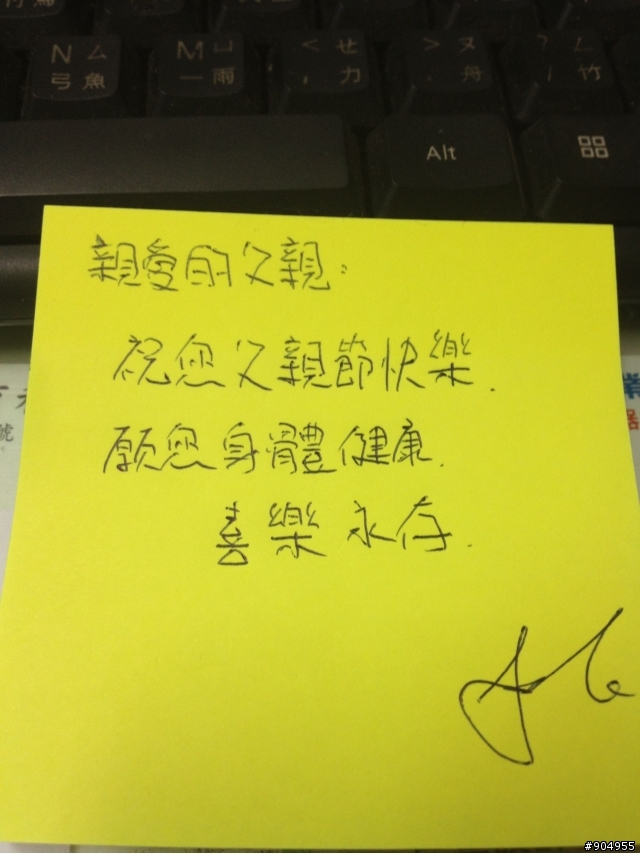 N ㄙ M ㄩ < ㄝ > ㄡ ? ㄥ
弓 魚 一 雨 , 力 . 舟 / 竹
Alt
親愛的父親：
祝您父親節快樂.
願您身體健康.
喜樂永存.
號
業
器
#904955